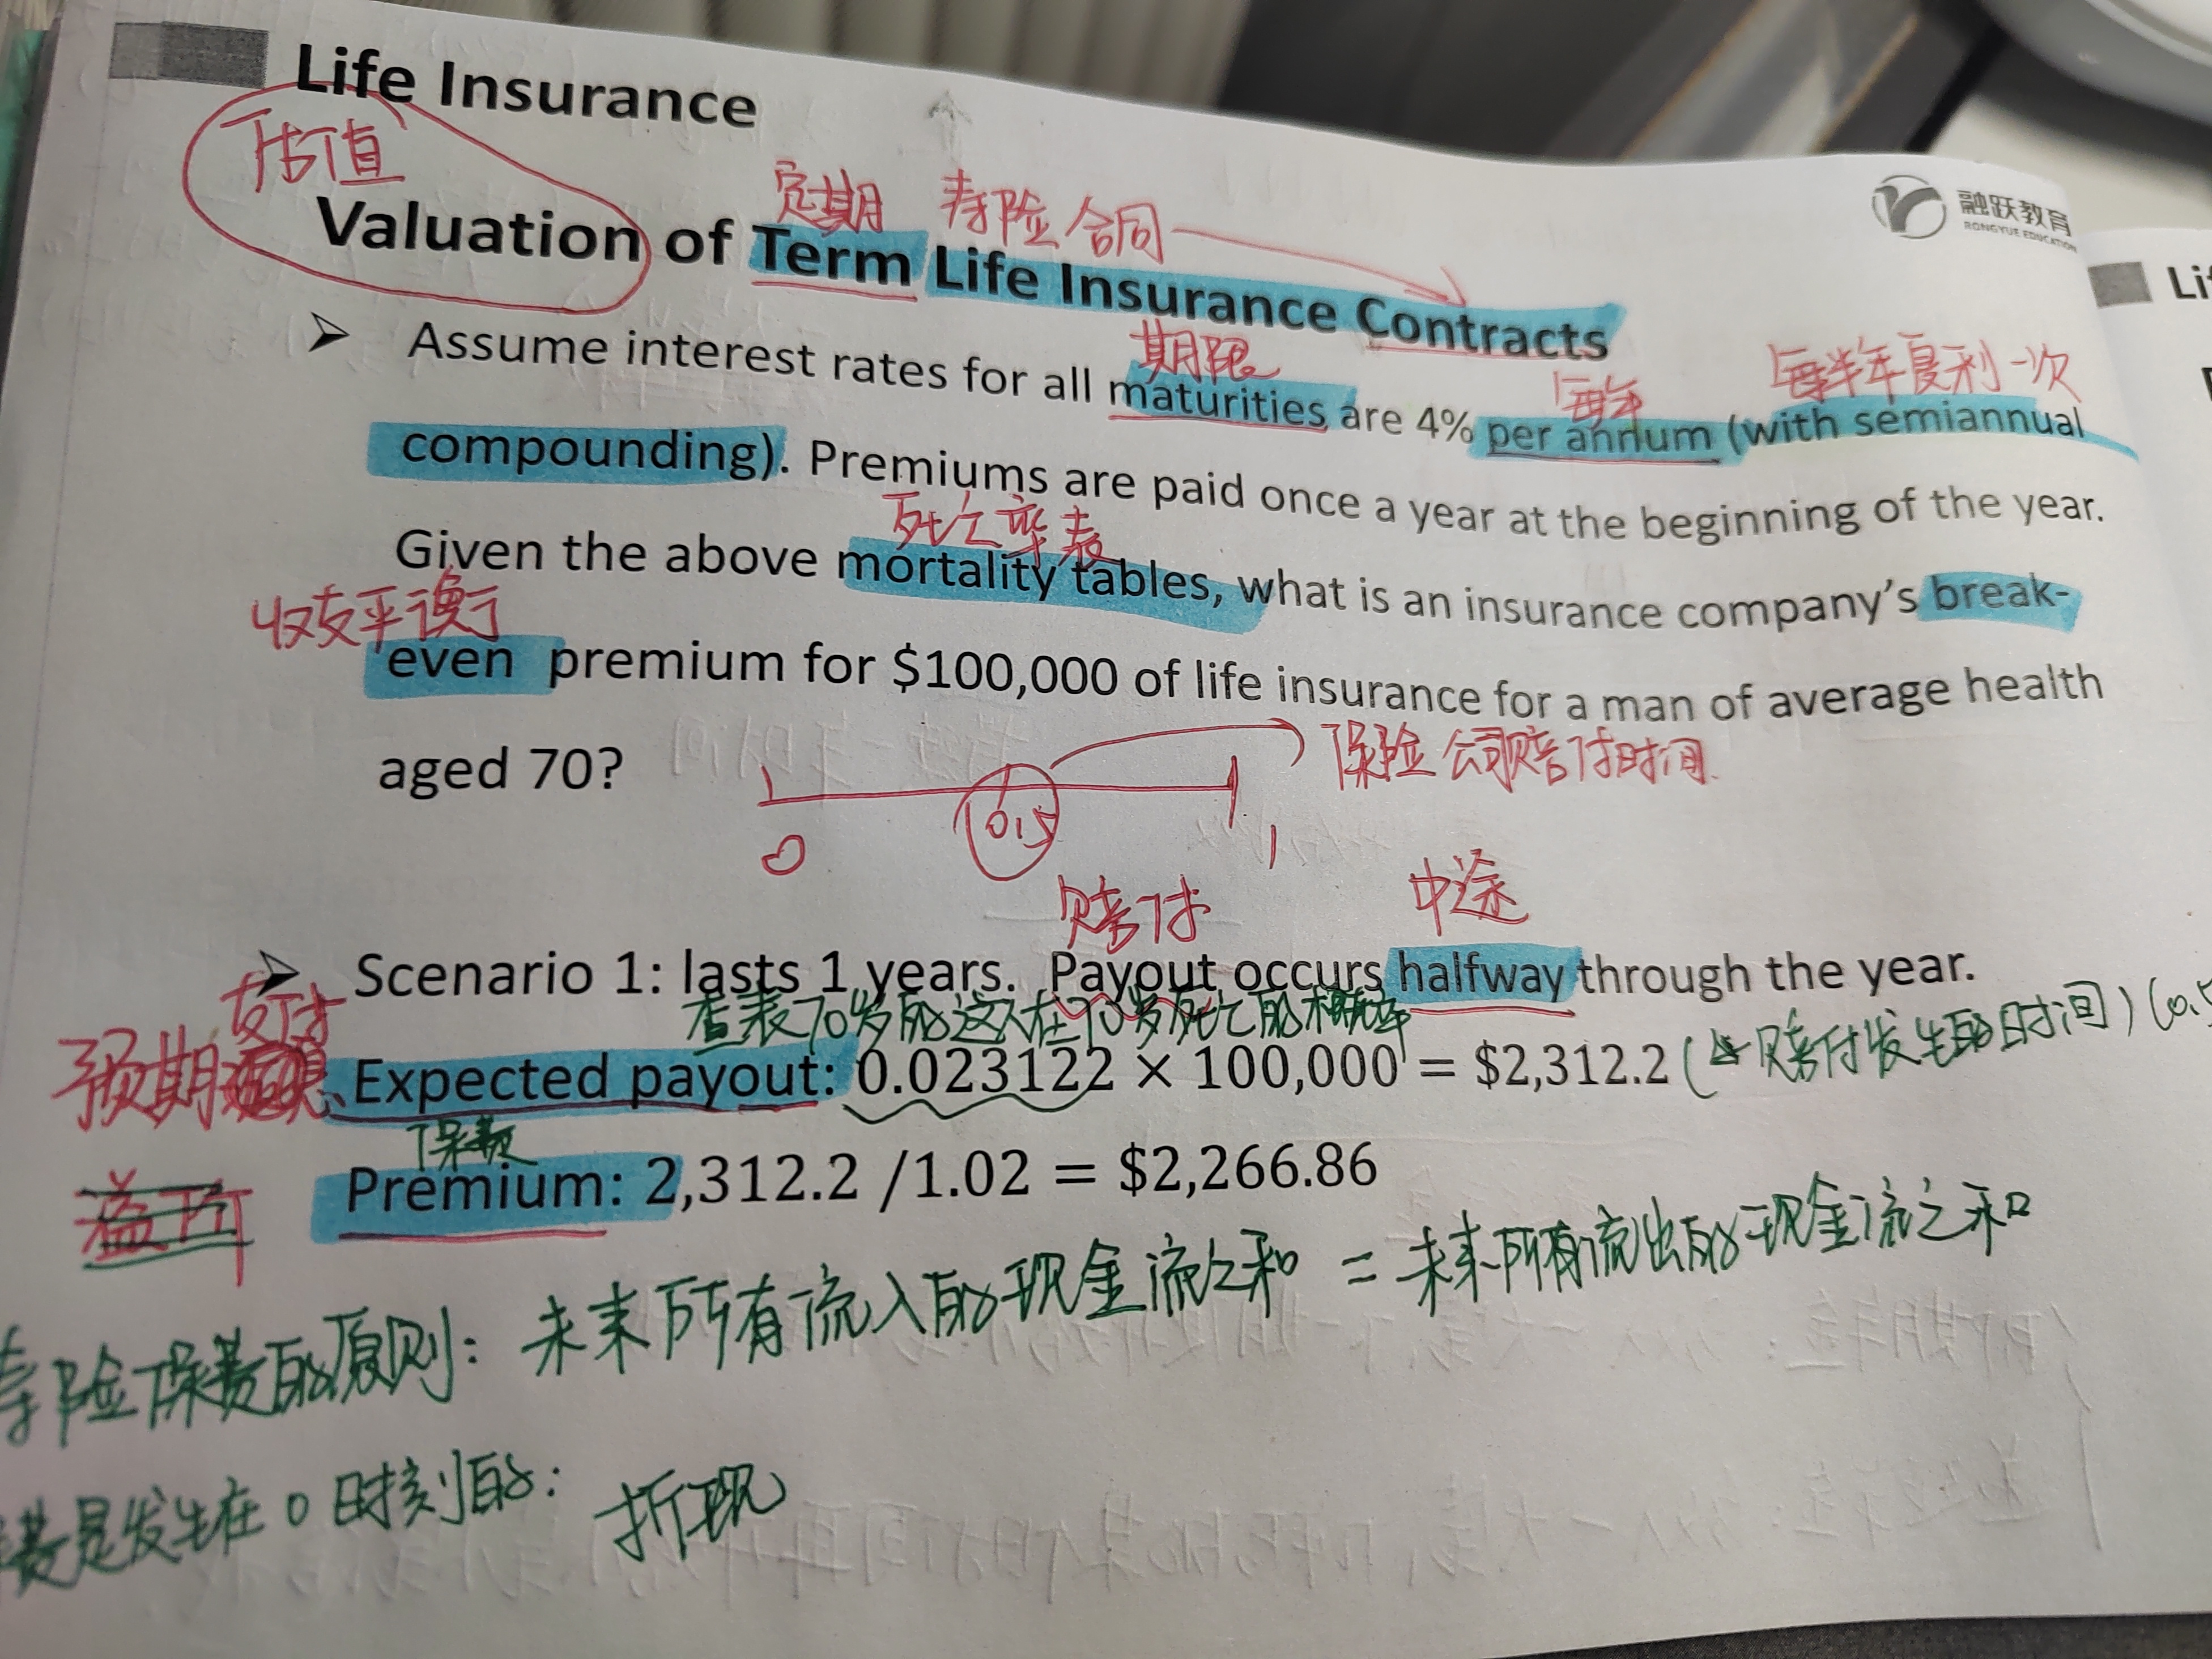 Life Insurance
估值
定期 寿险合同
融跃教育
RONGYUE EDUCATION
Valuation of Term Life Insurance Contracts
期限 每年 每半年复利一次
Assume interest rates for all maturities are 4% per annum (with semiannual
compounding). Premiums are paid once a year at the beginning of the year.
死亡率表
Given the above mortality tables, what is an insurance company's break-
收支平衡
even premium for $100,000 of life insurance for a man of average health
aged 70?
保险公司赔付时间
0 0.5 1
赔付 中途
Scenario 1: lasts 1 years. Payout occurs halfway through the year.
查表70岁的这人在70岁死亡的概率
支付
预期
Expected payout: 0.023122 × 100,000 = $2,312.2 (赔付发生的时间) (0.5
保费
Premium: 2,312.2 /1.02 = $2,266.86
寿险保费的原则: 未来所有流入的现金流之和 = 未来所有流出的现金流之和
费是发生在0时刻的: 折现
Li